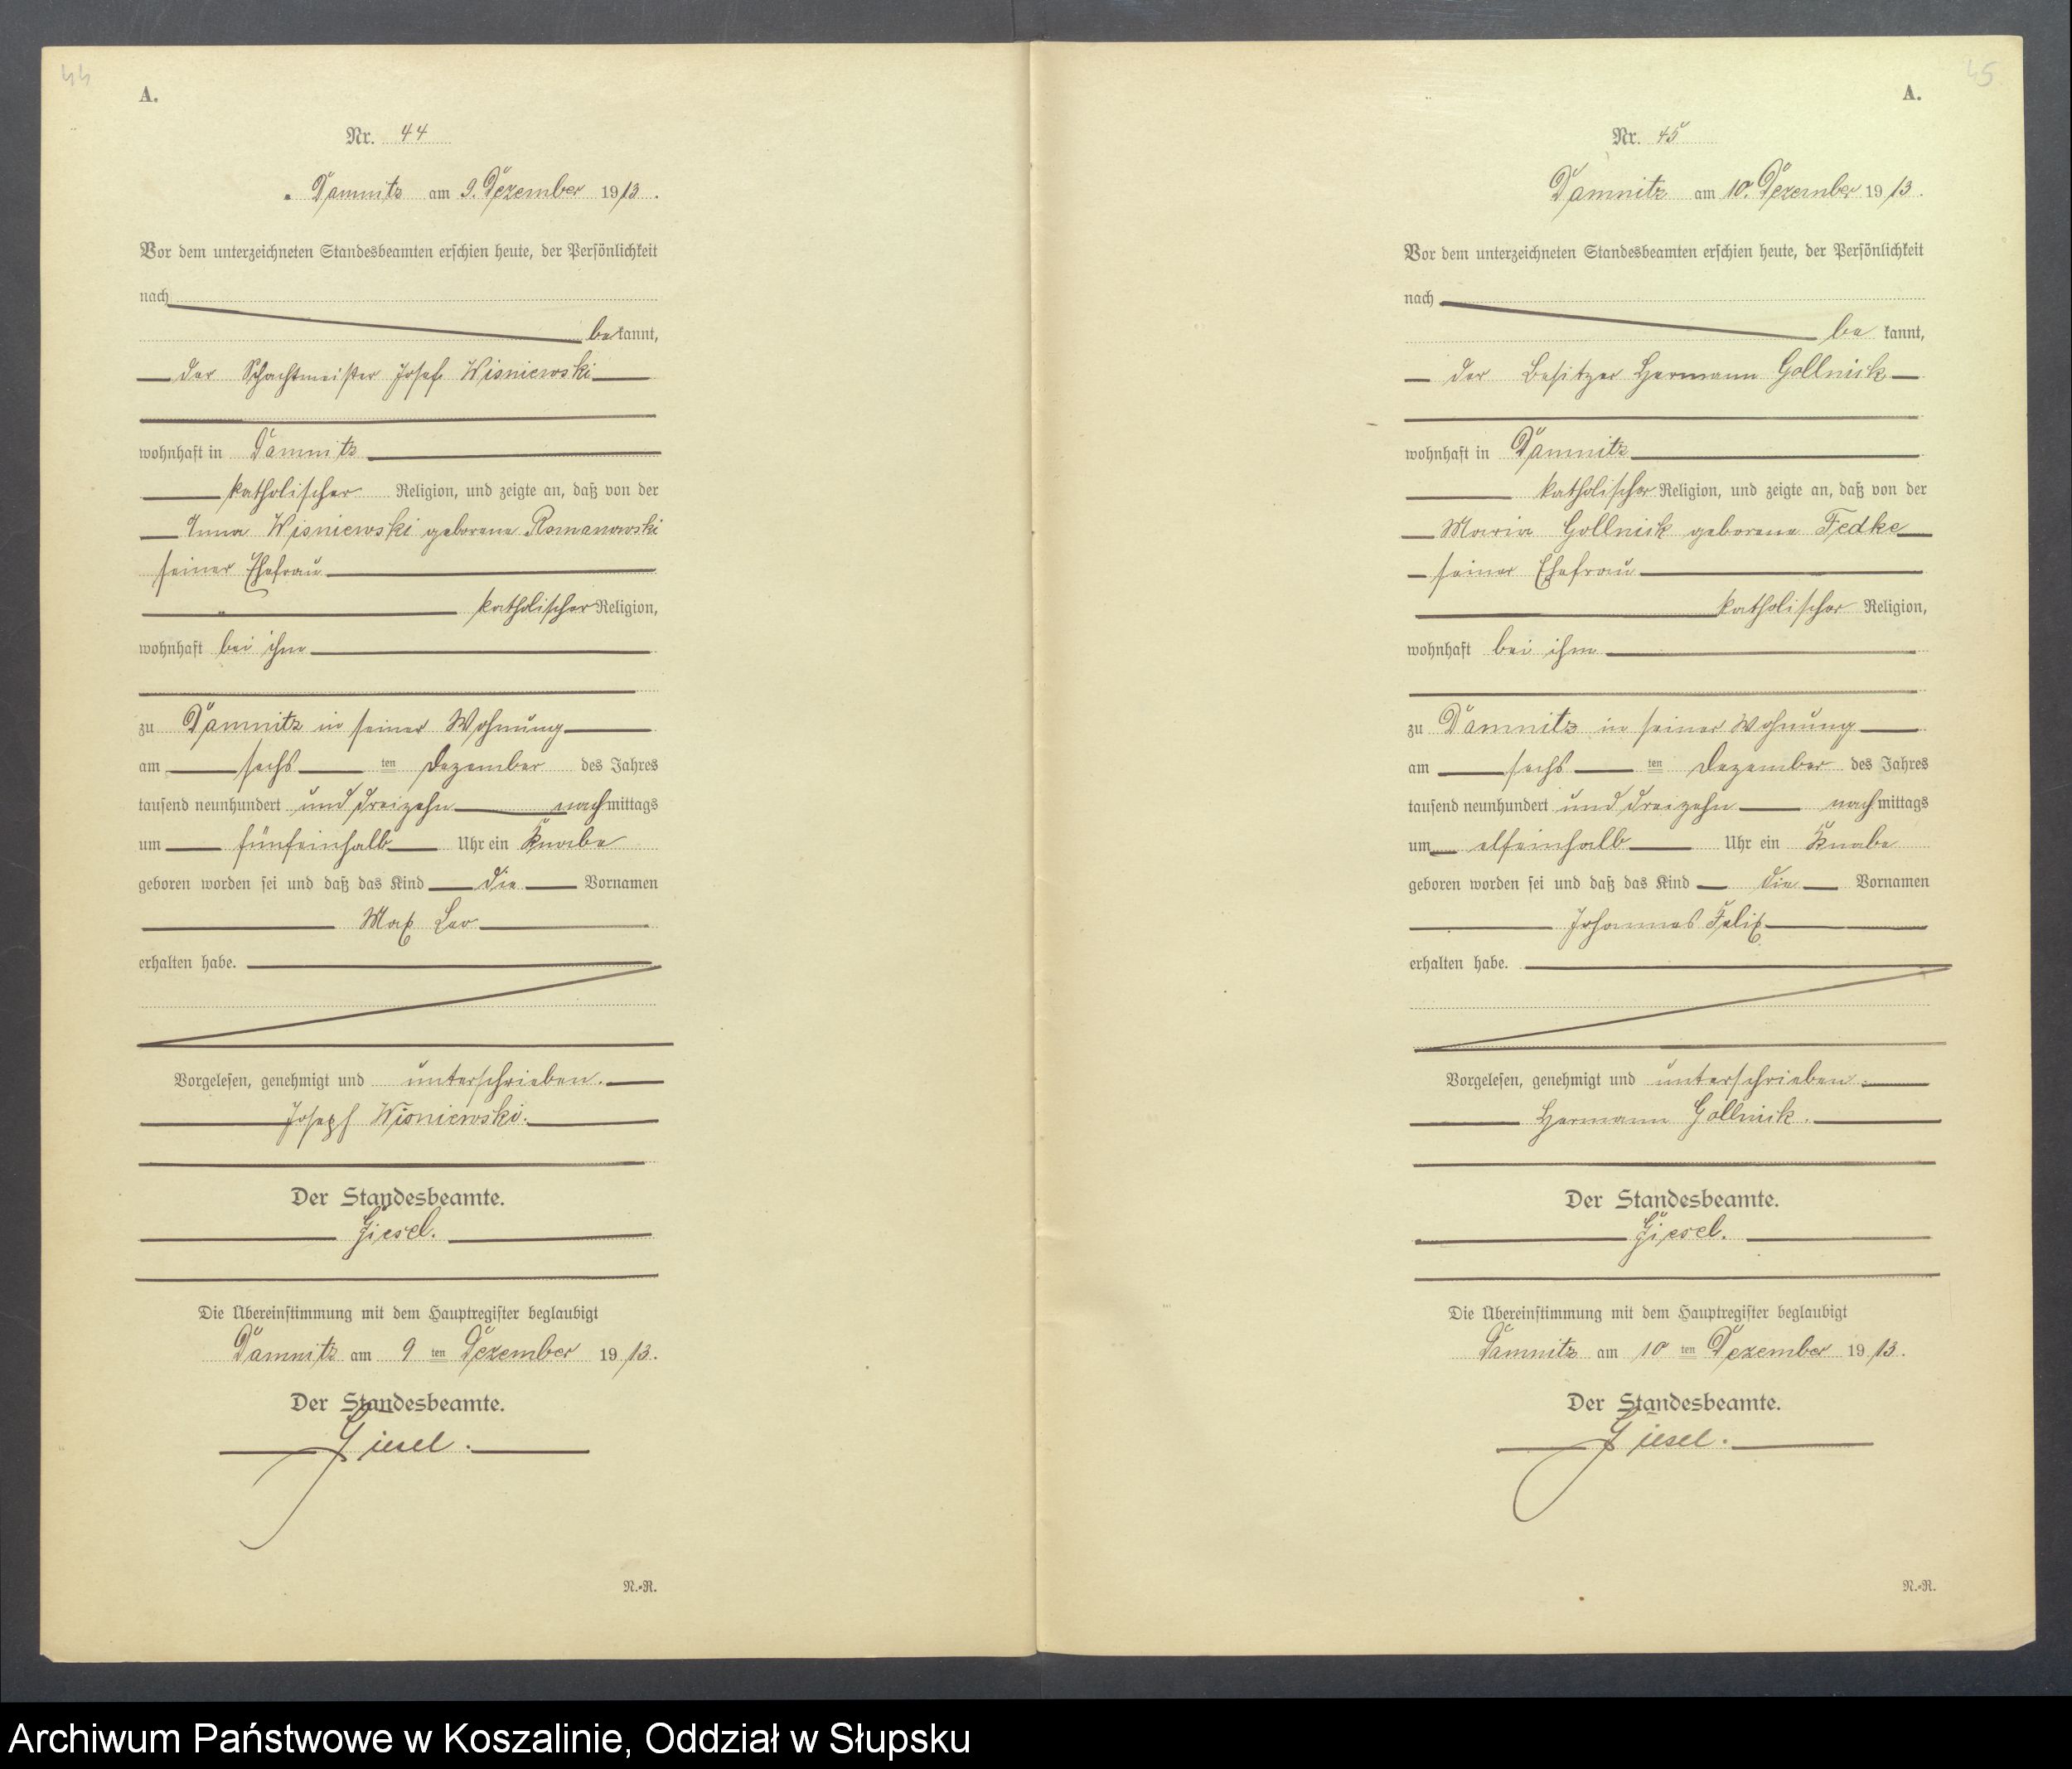 44
A.
Nr. 44
Damnitz am 9. Dezember 1913.
Vor dem unterzeichneten Standesbeamten erschien heute, der Persönlichkeit
nach
bekannt,
der Schachtmeister Josef Wisniewski
wohnhaft in Damnitz
katholischer Religion, und zeigte an, daß von der
Anna Wisniewski geborene Romanowski
seiner Ehefrau
katholischer Religion,
wohnhaft bei ihm
zu Damnitz in seiner Wohnung
am sechs ten Dezember des Jahres
tausend neunhundert und dreizehn nachmittags
um fünfeinhalb Uhr ein Knabe
geboren worden sei und daß das Kind die Vornamen
Max Leo
erhalten habe.
Vorgelesen, genehmigt und unterschrieben.
Joseph Wisniewski.
Der Standesbeamte.
Giesel.
Die Übereinstimmung mit dem Hauptregister beglaubigt
Damnitz am 9 ten Dezember 1913.
Der Standesbeamte.
Giesel.
N.-R.
45
A.
Nr. 45
Damnitz am 10. Dezember 1913.
Vor dem unterzeichneten Standesbeamten erschien heute, der Persönlichkeit
nach
be kannt,
der Besitzer Hermann Gollnick
wohnhaft in Damnitz
katholischer Religion, und zeigte an, daß von der
Maria Gollnick geborene Fedke
seiner Ehefrau
katholischer Religion,
wohnhaft bei ihm
zu Damnitz in seiner Wohnung
am sechs ten Dezember des Jahres
tausend neunhundert und dreizehn nachmittags
um elfeinhalb Uhr ein Knabe
geboren worden sei und daß das Kind die Vornamen
Johannes Felix
erhalten habe.
Vorgelesen, genehmigt und unterschrieben.
Hermann Gollnick.
Der Standesbeamte.
Giesel.
Die Übereinstimmung mit dem Hauptregister beglaubigt
Damnitz am 10 ten Dezember 1913.
Der Standesbeamte.
Giesel.
N.-R.
Archiwum Państwowe w Koszalinie, Oddział w Słupsku